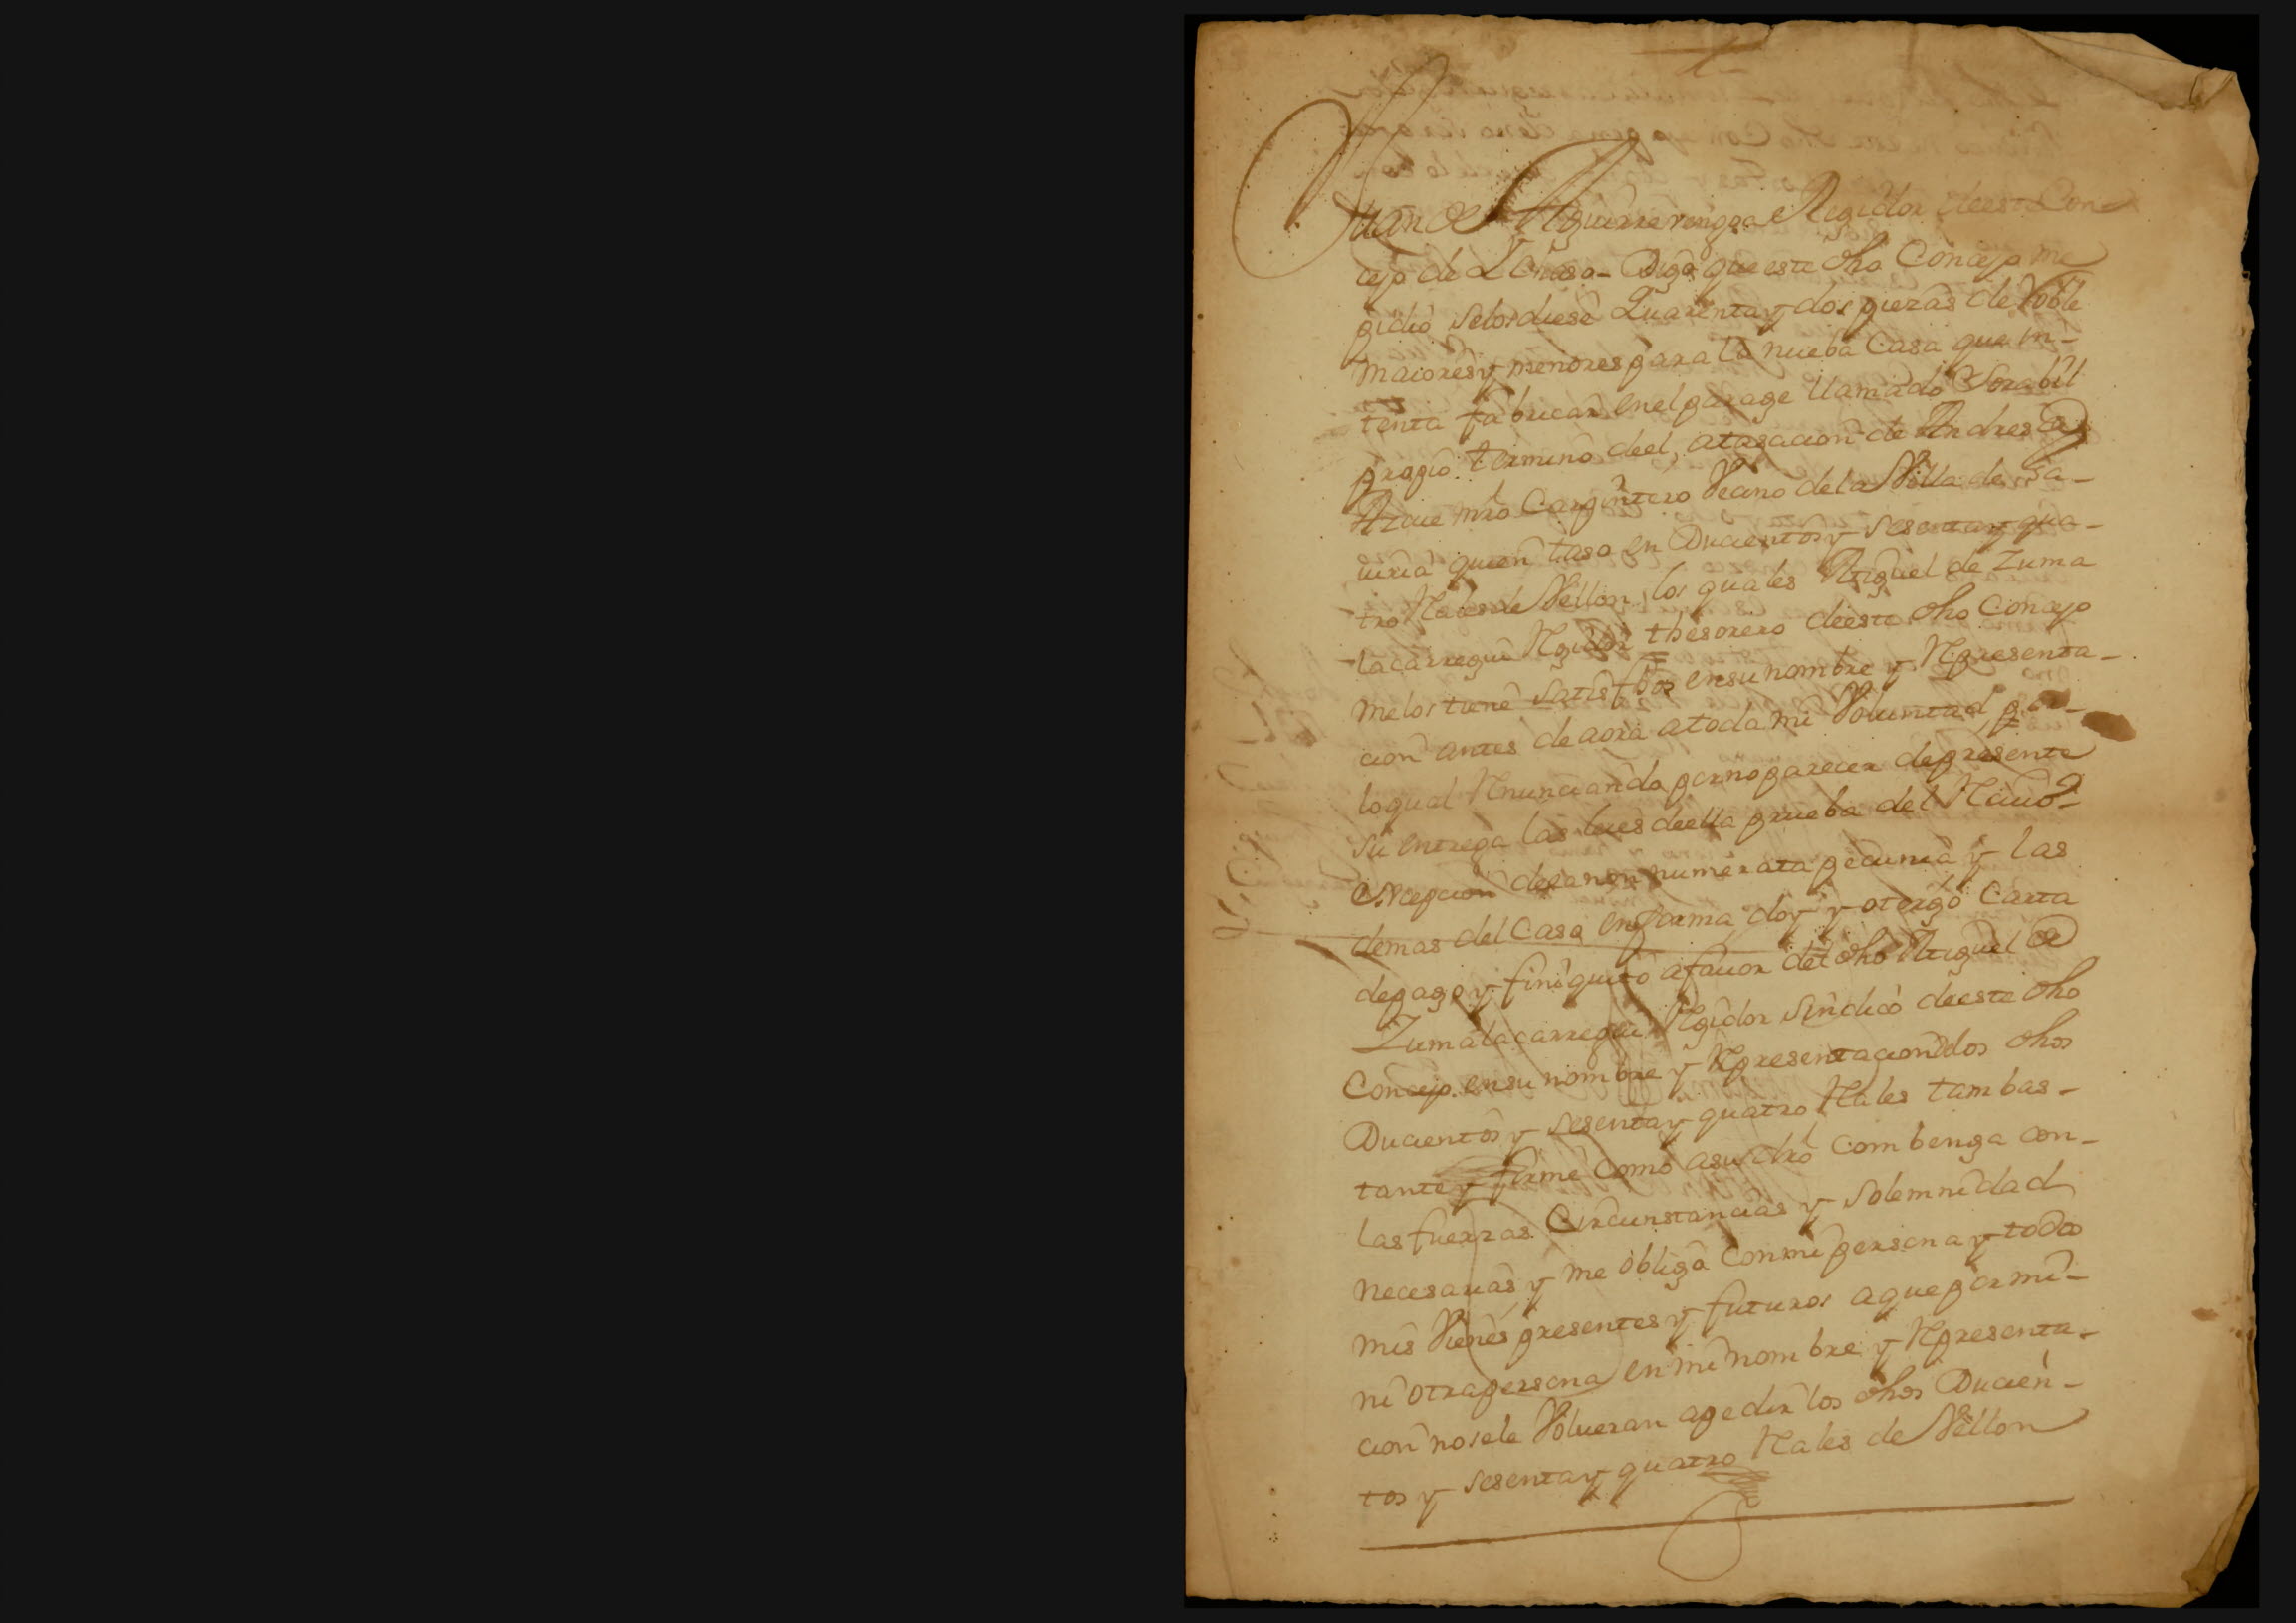 Juan de Aguirre vengoa Regidor de este Con-
cejo de Ichaso - Digo que este dho Concejo me
pidio selos diese Quarenta y dos piezas de Roble
maiores y menores para la nueba Casa que in-
tenta fabricar en el parage llamado Sorabil
propio termino de el, a tasacion de Andres de
mro Carpintero Vecino de la Villa de Ga-
uiria quien taso en Ducientos y sesenta y qua-
tro Rales de Vellon, los quales Miguel de Zuma
lacarregui Regidor thesorero de este dho Concejo
melos tiene satisfhos en su nombre y Representa-
cion antes de aora a toda mi Voluntad, por-
lo qual Renunciando por no parecer de presente
su entrega las leies de ella prueba del Reciuo
excepcion de la non numerata pecunia y las
demas del Caso en forma doy y otorgo Carta
de pago y finiquito a fauor del dho Miguel de
Zumalacarregui Regidor Sindico de este dho
Concejo en su nombre y Representacion dos dhos
Ducientos y sesenta y quatro Rales tam bas-
tante y firme como a su dro combenga con-
las fuerzas Circunstancias y Solemnidad
necesarias y me obligo con mi persona y todos
mis Vienes presentes y futuros a que por mi-
ni otra persona en mi nombre y Representa-
cion no se le Volueran a pedir los dhos Ducien-
tos y sesenta y quatro Rales de Vellon